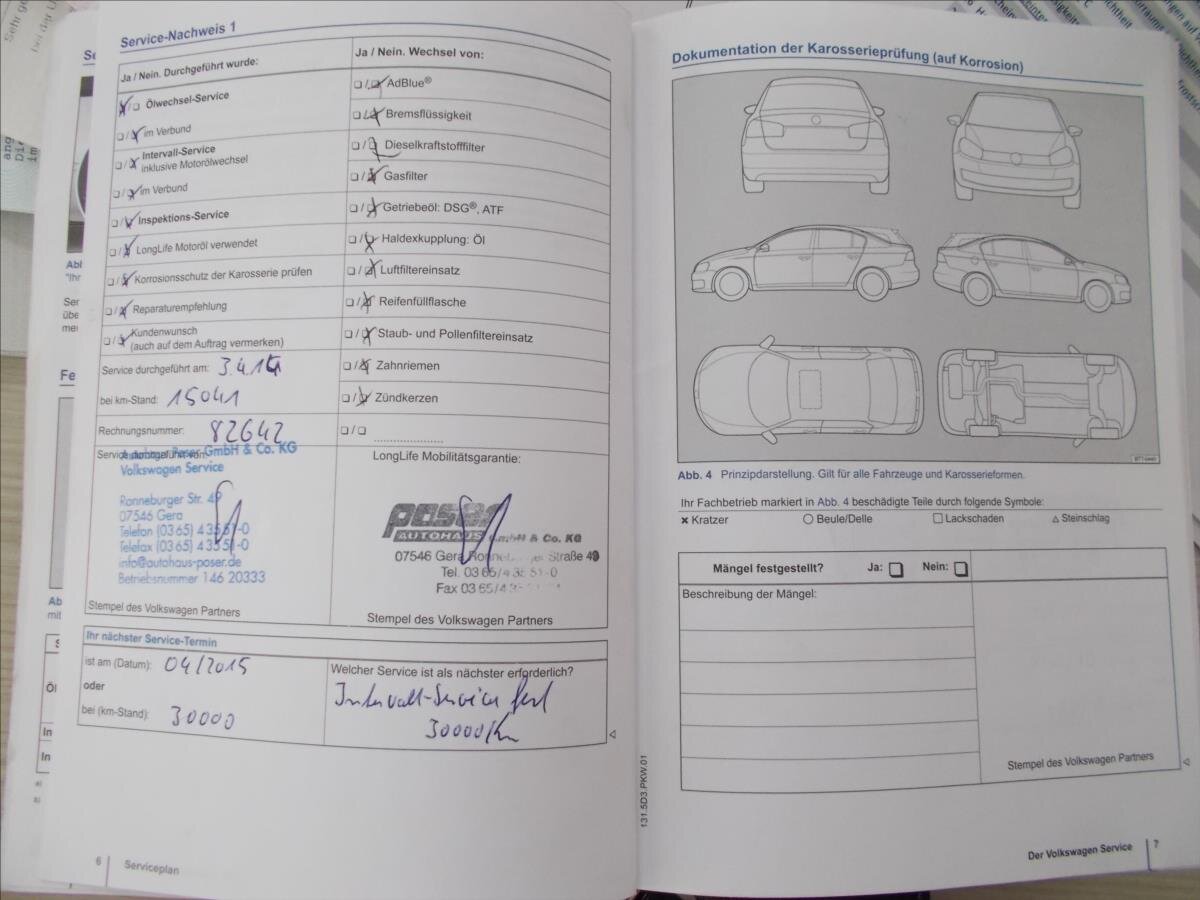 Service-Nachweis 1
Ja / Nein. Durchgeführt wurde:
Ölwechsel-Service
im Verbund
Intervall-Service
inklusive Motorölwechsel
im Verbund
Inspektions-Service
LongLife Motoröl verwendet
Korrosionsschutz der Karosserie prüfen
Reparaturempfehlung
Kundenwunsch
(auch auf dem Auftrag vermerken)
Service durchgeführt am: 3.4.14
bei km-Stand: 15041
Rechnungsnummer: 82642
Service durchgeführt von:
GmbH & Co. KG
Volkswagen Service
Ronneburger Str. 49
07546 Gera
Telefon (0365) 43551-0
Telefax (0365) 43551-0
info@autohaus-poser.de
Betriebsnummer 146 20333
Stempel des Volkswagen Partners
Ja / Nein. Wechsel von:
AdBlue®
Bremsflüssigkeit
Dieselkraftstofffilter
Gasfilter
Getriebeöl: DSG®, ATF
Haldexkupplung: Öl
Luftfiltereinsatz
Reifenfüllflasche
Staub- und Pollenfiltereinsatz
Zahnriemen
Zündkerzen
LongLife Mobilitätsgarantie:
poser
AUTOHAUS GmbH & Co. KG
07546 Gera Straße 49
Tel. 03 65/4 35 51-0
Fax 03 65/4
Stempel des Volkswagen Partners
Ihr nächster Service-Termin
ist am (Datum): 04/2015
oder
bei (km-Stand): 30000
Welcher Service ist als nächster erforderlich?
Intervall-Service fest
30000/Km
6 Serviceplan
Dokumentation der Karosserieprüfung (auf Korrosion)
Abb. 4 Prinzipdarstellung. Gilt für alle Fahrzeuge und Karosserieformen.
Ihr Fachbetrieb markiert in Abb. 4 beschädigte Teile durch folgende Symbole:
Kratzer Beule/Delle Lackschaden Steinschlag
Mängel festgestellt? Ja: Nein:
Beschreibung der Mängel:
Stempel des Volkswagen Partners
131.5D3.PKW.01
Der Volkswagen Service 7